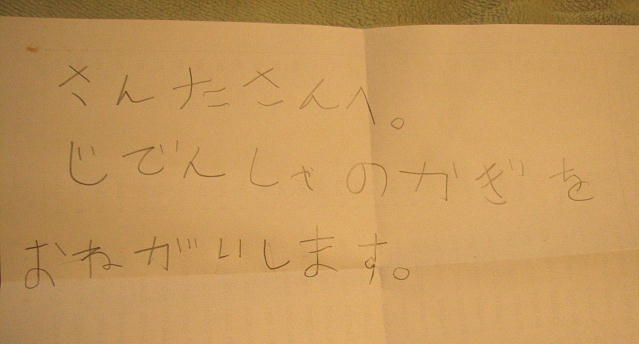 さんたさんへ。
じでんしゃのかぎを
おねがいします。